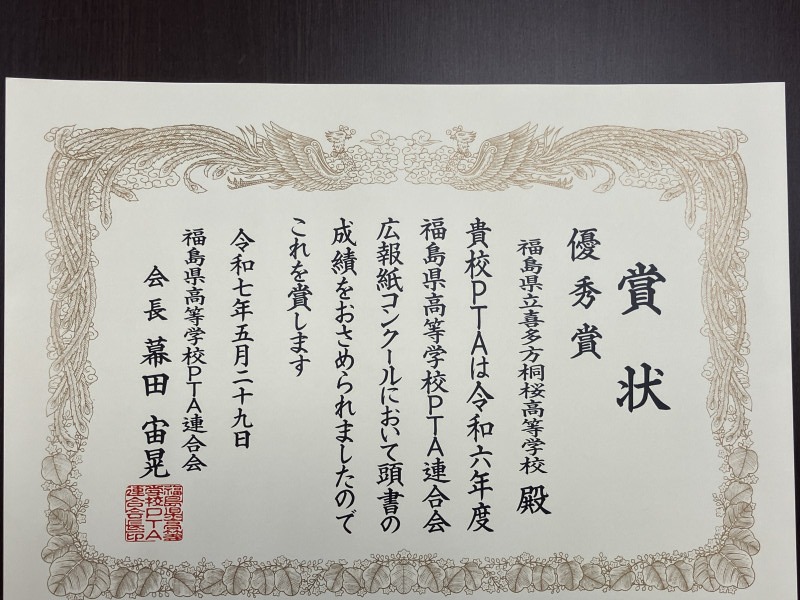 賞状
優秀賞
福島県立喜多方桐桜高等学校 殿
貴校PTAは令和六年度
福島県高等学校PTA連合会
広報紙コンクールにおいて頭書の
成績をおさめられましたので
これを賞します
令和七年五月二十九日
福島県高等学校PTA連合会
会長 幕田 宙晃
福島県高等
学校PTA
連合会長印